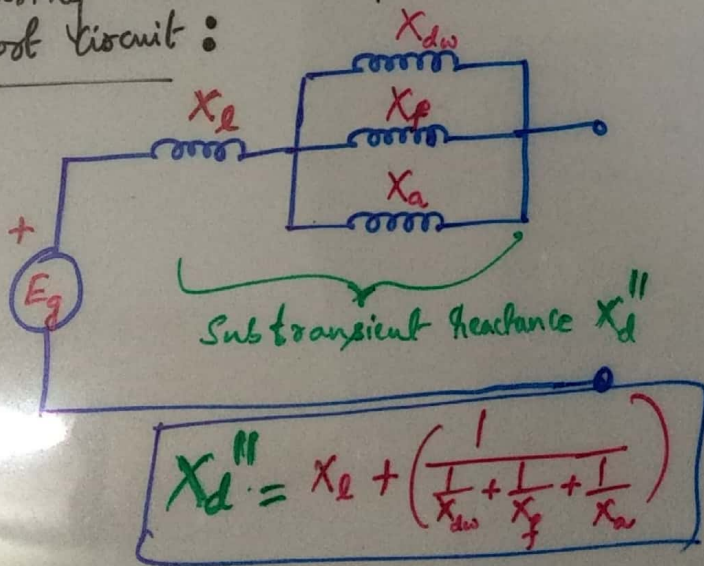 Circuit :
X_dw
X_l
X_f
X_a
+
E_g
Subtransient reactance X_d"
X_d" = X_l + (1 / (1/X_dw + 1/X_f + 1/X_a))